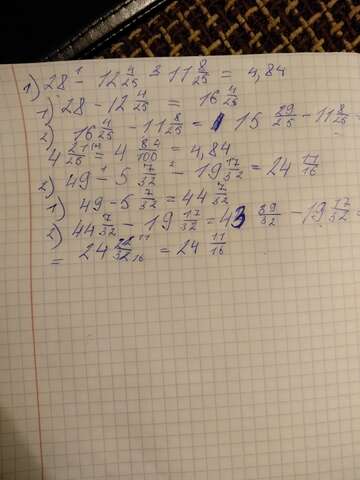 1) 28 - 12 4/25 - 11 8/25 = 4,84
1) 28 - 12 4/25 = 16 4/25
2) 16 4/25 - 11 8/25 = 15 29/25 - 11 8/25
4 21/25 = 4 84/100 = 4,84
2) 49 - 5 7/32 - 19 17/32 = 24 11/16
1) 49 - 5 7/32 = 44 7/32
2) 44 7/32 - 19 17/32 = 43 39/32 - 19 17/32
= 24 22/32 11/16 = 24 11/16